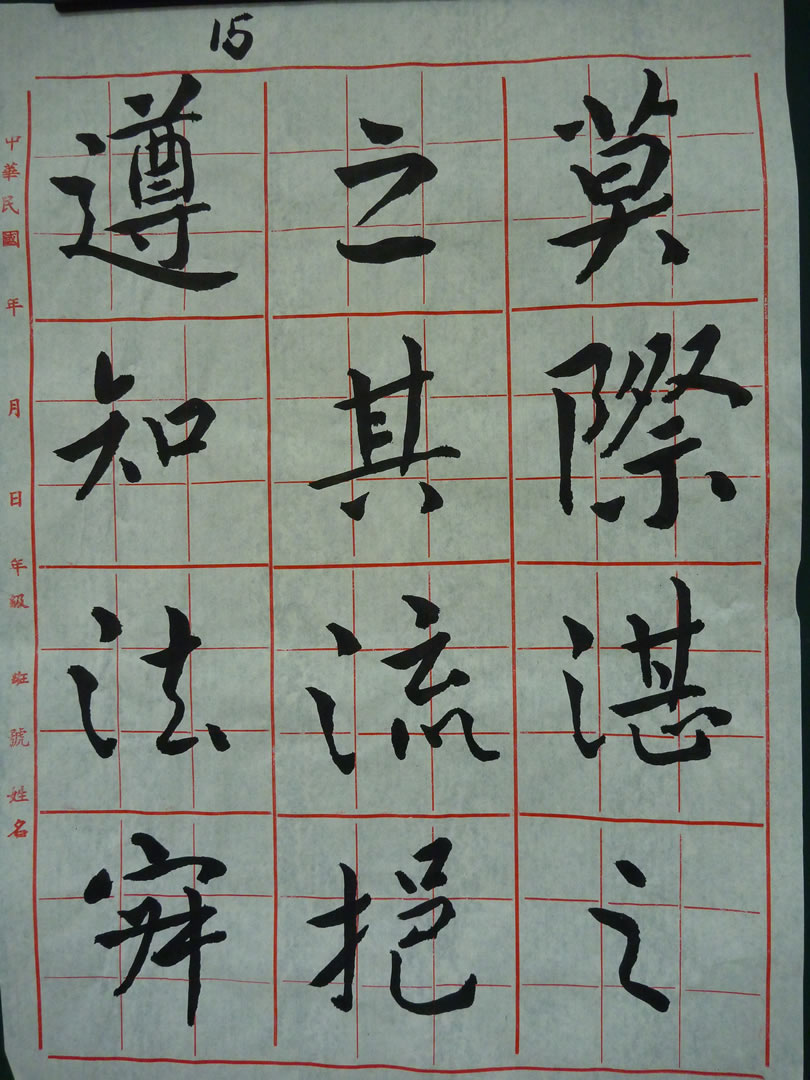 15
莫際湛之
之其流挹
遵知法寂
中華民國 年 月 日 年級 班 號 姓名